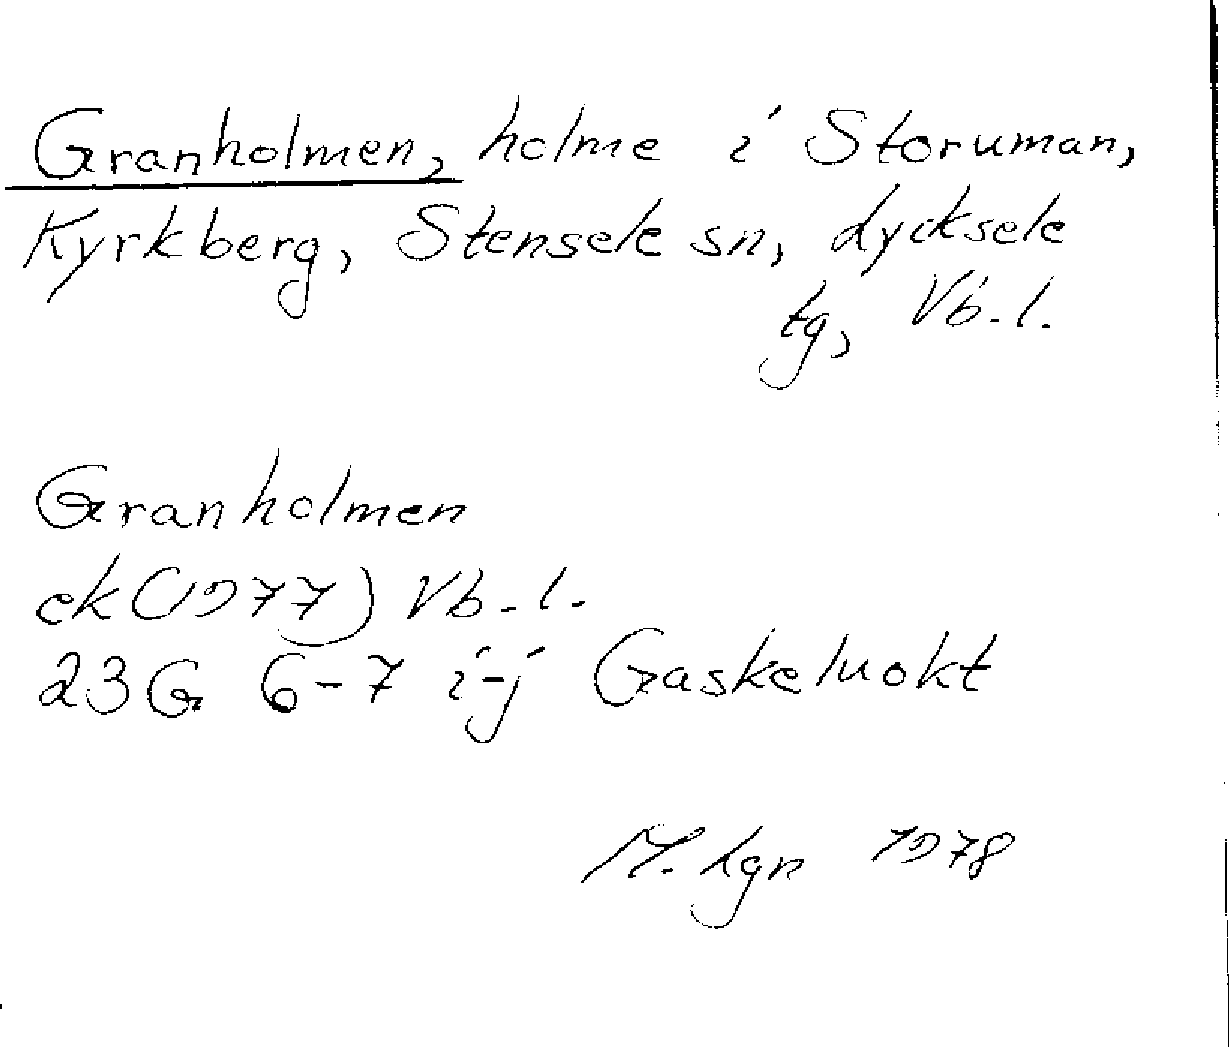 Granholmen, holme i Storuman,
Kyrkberg, Stensele sn, Lycksele
tg, Vb.l.
Granholmen
ek (1977) Vb.l.
23G 6-7 i-j Gaskeluokt
M. Lgn 1978